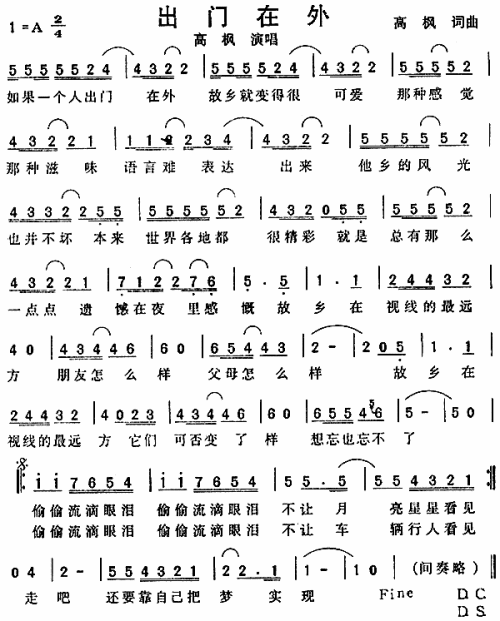 出门在外
1=A 2/4
高枫 词曲
高枫 演唱
5 5 5 5 5 5 2 4 | 4 3 2 2 | 5 5 5 5 5 2 4 | 4 3 2 2 | 5 5 5 5 5 2 |
如果一个人出门 在外 故乡就变得很 可爱 那种感觉
4 3 2 2 1 | 1 1 2 2 3 4 | 4 3 2 2 | 5 5 5 5 5 5 2 |
那种滋味 语言难 表达 出来 他乡的风光
4 3 3 2 2 5 5 | 5 5 5 5 5 2 | 4 3 2 0 5 5 | 5 5 5 5 2 |
也并不坏 本来 世界各地都 很精彩 就是 总有那么
4 3 2 2 1 | 7 1 2 2 7 6 | 5 · 5 | 1 · 1 | 2 4 4 4 3 2 |
一点点 遗 憾在夜 里感 慨 故 乡 在 视线的最远
4 0 | 4 3 4 4 6 | 6 0 | 6 5 4 4 3 | 2 - | 2 0 5 | 1 · 1 |
方 朋友怎么 样 父母怎么 样 故 乡 在
2 4 4 3 2 | 4 0 2 3 | 4 3 4 4 6 | 6 0 | 6 5 5 4 5 6 | 5 - | 5 0 |
视线的最远 方 它们 可否变了 样 想忘也忘不 了
i i 7 6 5 4 | i i 7 6 5 4 | 5 5 · 5 | 5 5 4 3 2 1
偷偷流滴眼泪 偷偷流滴眼泪 不让 月 亮星星看见
偷偷流滴眼泪 偷偷流滴眼泪 不让 车 辆行人看见
0 4 | 2 - | 5 5 4 3 2 1 | 2 2 · 1 | 1 - | 1 0 | (间奏略)
走 吧 还要靠自己把 梦 实 现 Fine D.C.
D.S.